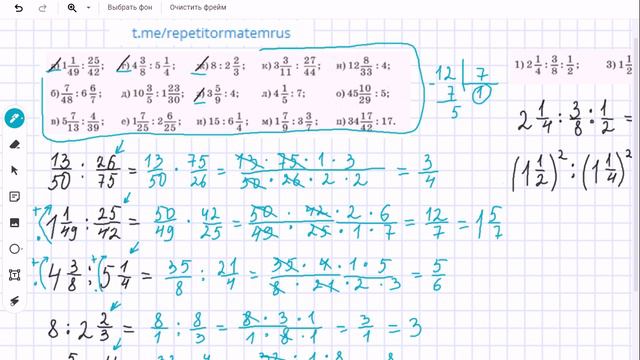 Выбрать фон Очистить фрейм
t.me/repetitormatemrus
а) 1 1/49 : 25/42; г) 4 3/8 : 5 1/4; ж) 8 : 2 2/3; к) 3 3/11 : 27/44; н) 12 8/33 : 4;
б) 7/48 : 6 6/7; д) 10 3/5 : 1 23/30; з) 3 5/9 : 4; л) 4 1/5 : 7; о) 45 10/29 : 5;
в) 5 7/13 : 4/39; е) 1 7/25 : 2 6/25; и) 15 : 6 1/4; м) 1 7/9 : 3 3/7; п) 34 17/42 : 17.
12 7
- 7 1
5
1) 2 1/4 : 3/8 : 1/2; 3) 1 1/
2 1/4 : 3/8 : 1/2 =
(1 1/2)² : (1 1/4)²
13/50 : 26/75 = 13/50 · 75/26 = 13 · 75 · 1 · 3 / 50 · 26 · 2 · 2 = 3/4
1 1/49 : 25/42 = 50/49 · 42/25 = 50 · 42 · 2 · 6 / 49 · 25 · 1 · 7 = 12/7 = 1 5/7
4 3/8 : 5 1/4 = 35/8 : 21/4 = 35 · 4 · 1 · 5 / 8 · 21 · 2 · 3 = 5/6
8 : 2 2/3 = 8/1 : 8/3 = 8 · 3 · 1 / 1 · 8 · 1 = 3/1 = 3